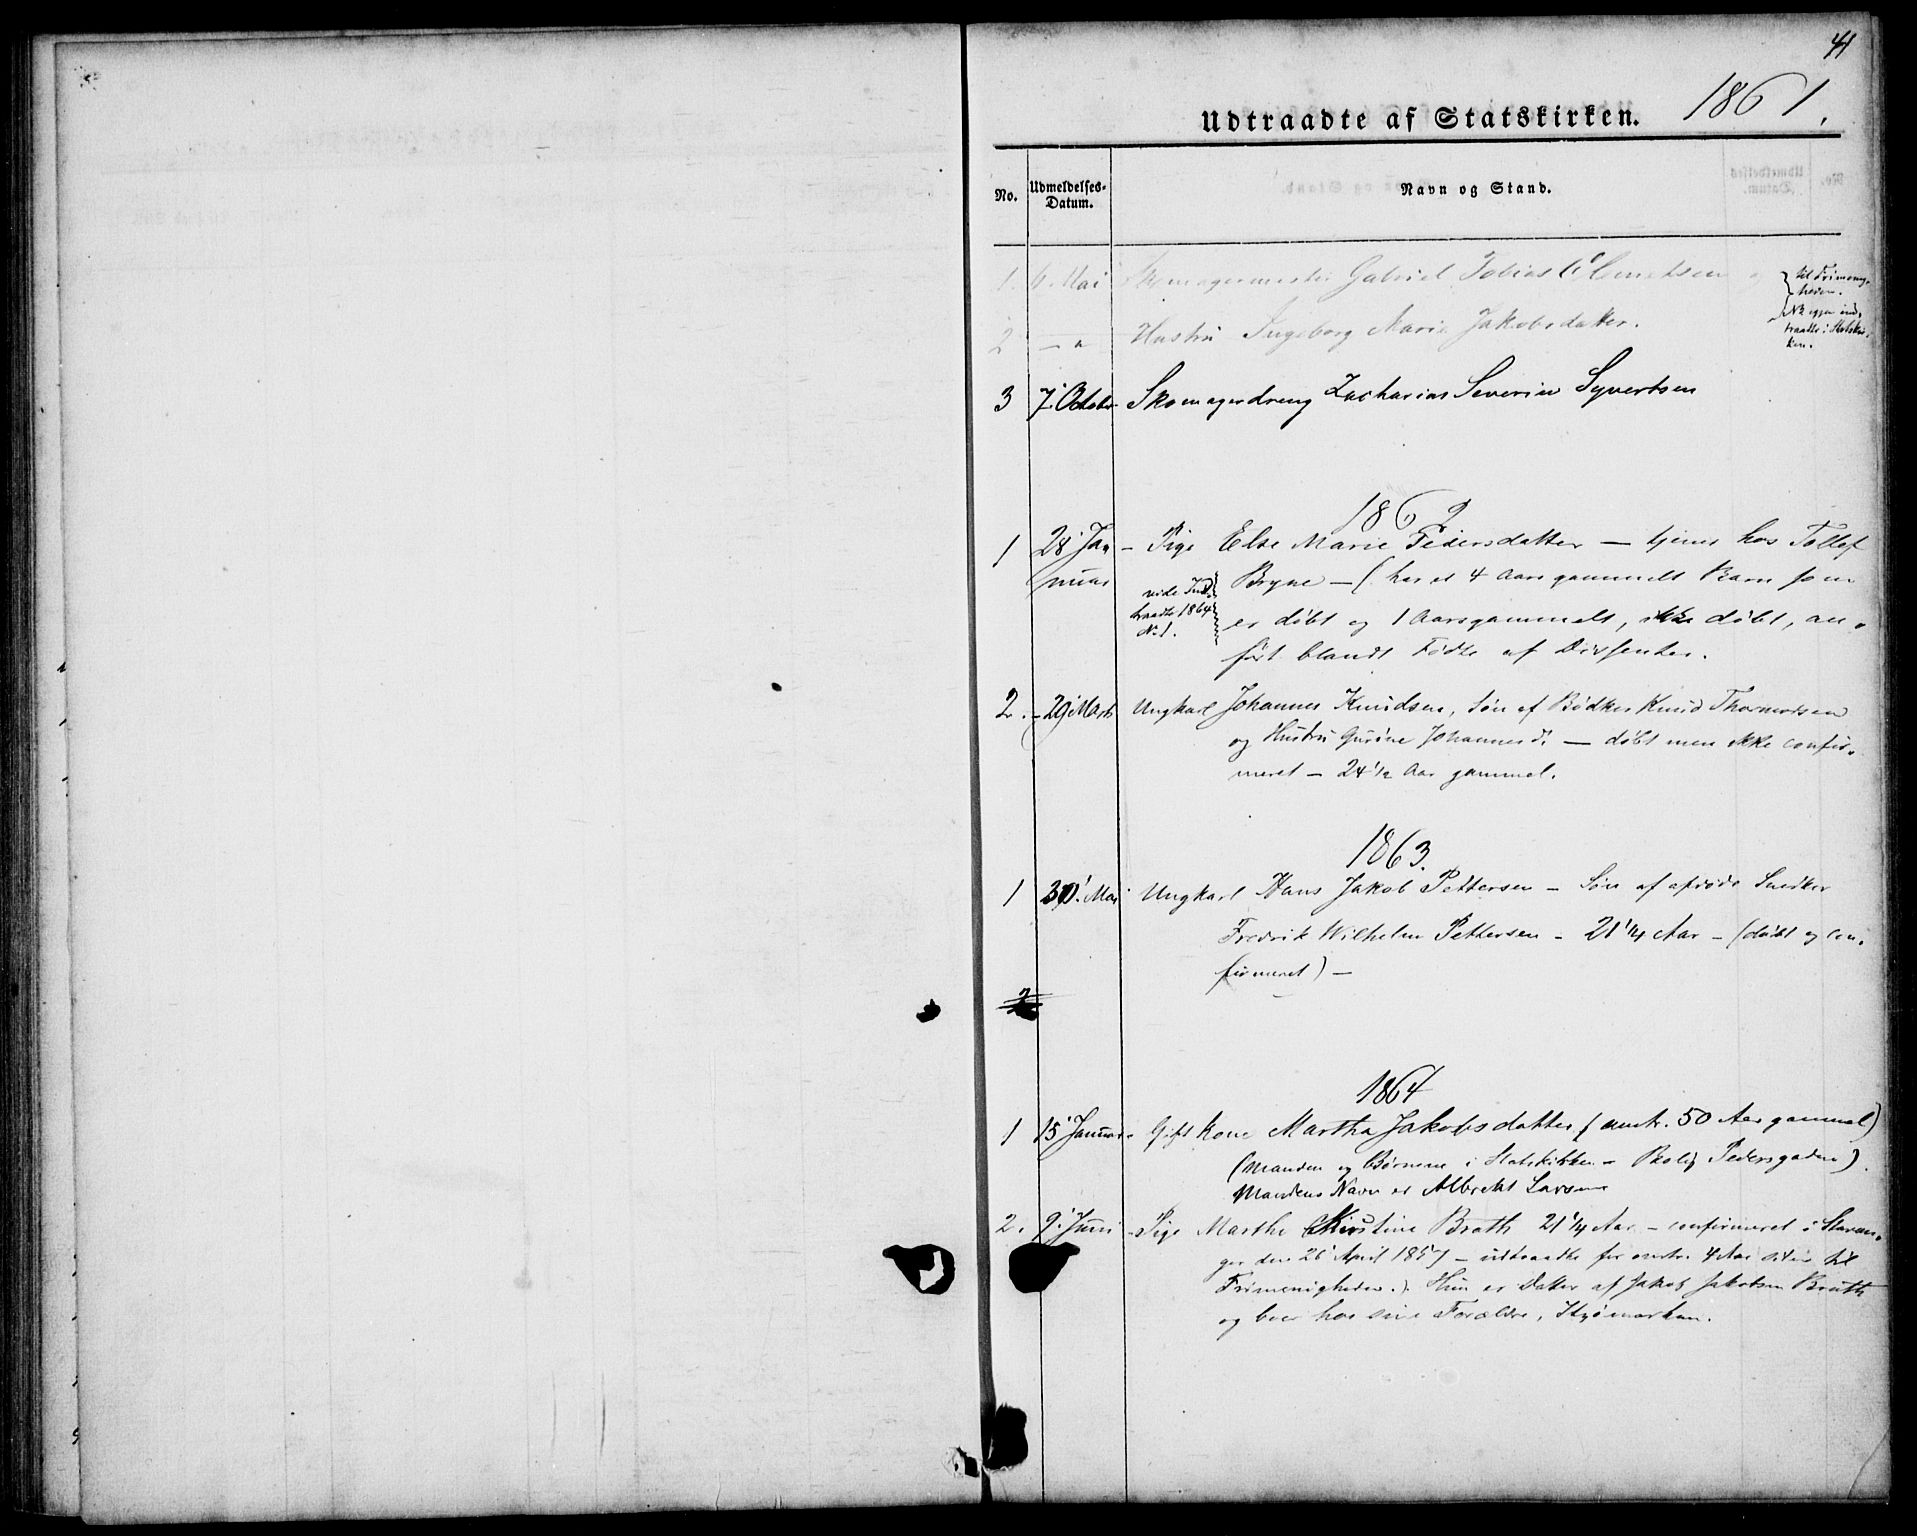 41
Udtraadte af Statskirken. 1861.
No. Udmeldelses-Datum. Navn og Stand.
1. 6. Mai Skomagermester Gabriel Tobias Clemetsen og
til Frimenig-
heden.
2 — " Hustru Ingeborg Marie Jakobsdatter.
No 2 igjen ind-
traadte i Statskir-
ken.
3 7' October Skomagerdreng Zacharias Severin Syvertsen
1862
1 28' Jan- Pige Else Marie Pedersdatter — tjener hos Tollef
nuar vide Ind- Bryne — (har et 4 Aars gammelt Barn som
traadte 1864 er døbt og 1 Aarsgammelt, ikke døbt, an-
No 1. ført blandt Fødte af Dissenter.
2. 29' Marts Ungkarl Johannes Knudsen, Søn af Bødker Knud Thomassen
og Hustru Gurine Johannesd. — døbt men ikke confir-
meret — 24 1/2 Aar gammel.
1863.
1 30'. Mai Ungkarl Hans Jakob Pettersen — Søn af afdøde Snedker
Fredrik Wilhelm Pettersen — 21 1/4 Aar — (døbt og con-
firmeret) —
2
1864
1 15' Januar Gift Kone Martha Jakobsdatter (omtr. 50 Aar gammel)
(Manden og Børnene i Statskirken — Bolig Pedersgaden)
Mandens Navn er Albrekt Larsen
2. 9' Juni Pige Marthe Kirstine Brath 21 1/4 Aar — confirmeret i Stavan-
ger den 26' April 1857 — udtraadte for omtr. 4 Aar siden til
Frimenigheden.). Hun er Datter af Jakob Jakobsen Brath
og boer hos sine Forældre,